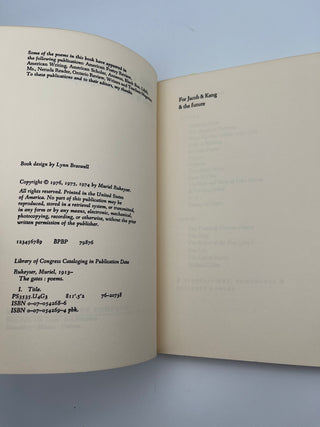 Some of the poems in this book have appeared in
the following publications: American Poetry Review,
American Writing, American Scholar, Antaeus, Black Box,
Ms., Nevada Reader, Ontario Review, Writers and Teachers
To these publications and to their editors, my thanks
Book design by Lynn Braswell
Copyright © 1976, 1975, 1974 by Muriel Rukeyser.
All rights reserved. Printed in the United States
of America. No part of this publication may be
reproduced, stored in a retrieval system, or transmitted,
in any form or by any means, electronic, mechanical,
photocopying, recording, or otherwise, without the prior
written permission of the publisher.
123456789 BPBP 79876
Library of Congress Cataloging in Publication Data
Rukeyser, Muriel, 1913–
The gates: poems.
I. Title.
PS3535.U4G3 811'.5'2 76-20738
ISBN 0-07-054268-6
ISBN 0-07-054269-4 pbk.
For Jacob & Kang
& the future